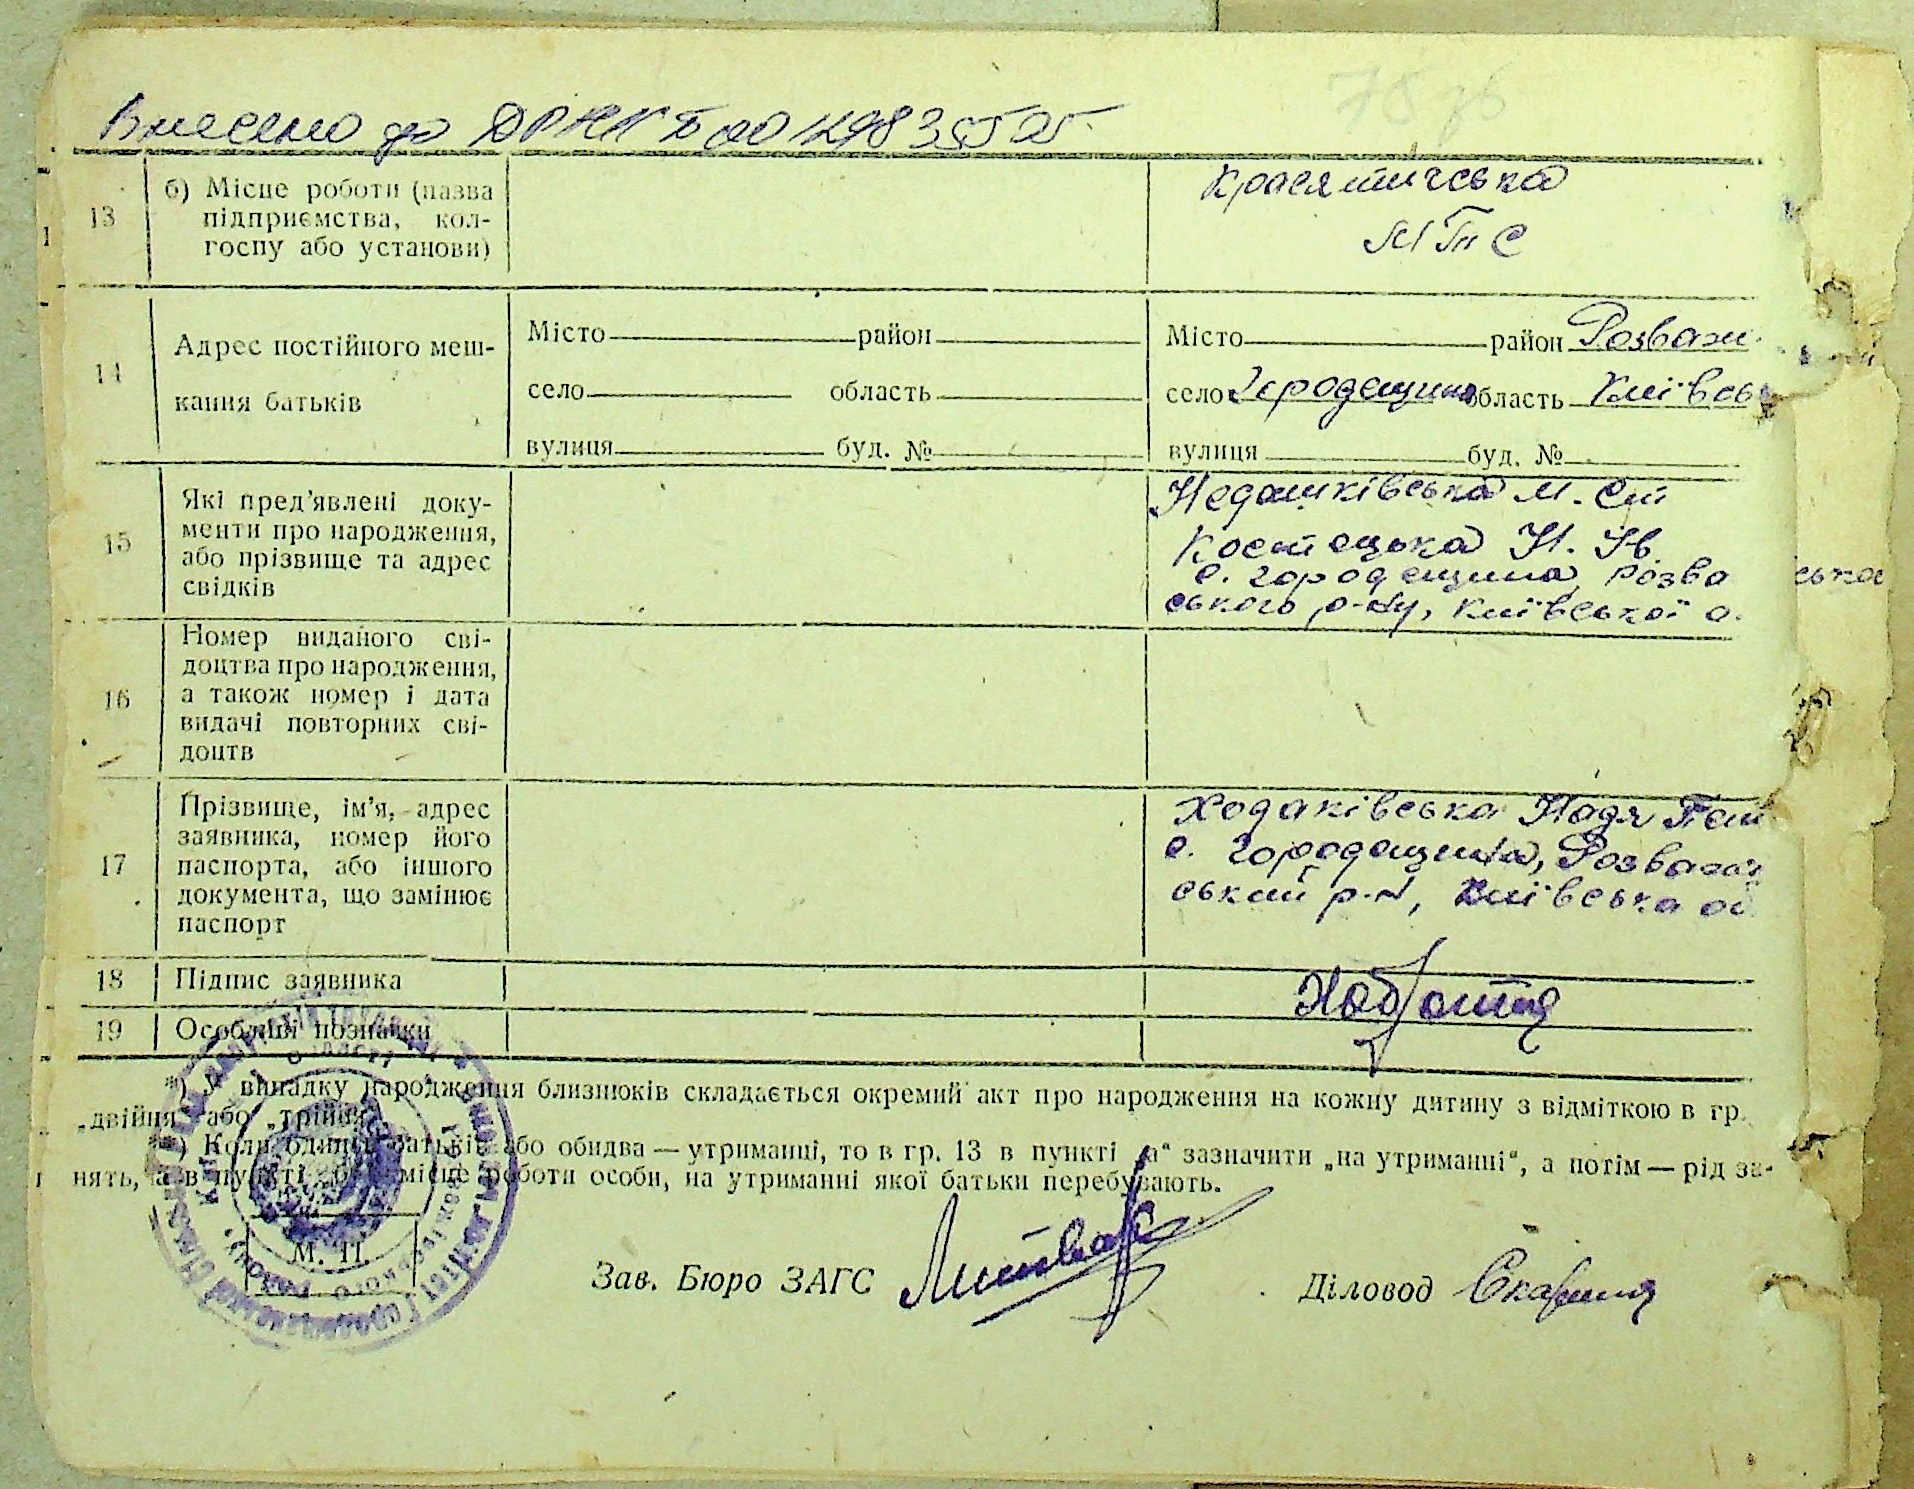 Внесено до
13 б) Місце роботи (назва підприємства, кол-
госпу або установи)
Красятичська
МТС
14 Адрес постійного меш-
кання батьків
Місто район
село область
вулиця буд. №
Місто район Розваж
село Городещина область Київсь
вулиця буд. №
15 Які пред'явлені доку-
менти про народження,
або прізвище та адрес
свідків
Недашківська М. Ст
Костецька Н. Ів
с. Городещина, Розва
ського р-ну, Київської о.
ська
16 Номер виданого сві-
доцтва про народження,
а також номер і дата
видачі повторних сві-
доцтв
17 Прізвище, ім'я, адрес
заявника, номер його
паспорта, або іншого
документа, що замінює
паспорт
Ходаківська Надя Пет
с. Городещина, Розваж
ський р-н, Київська об
18 Підпис заявника
19 Особливі познаики
*) У випадку народження близнюків складається окремий акт про народження на кожну дитину з відміткою в гр.
„двійня“ або „трійня“.
) Коли один з батьків або обидва — утриманці, то в гр. 13 в пункті „а“ зазначити „на утриманні“, а потім — рід за-
нять, а в пункті „б“ місце роботи особи, на утриманні якої батьки перебувають.
М. П.
Зав. Бюро ЗАГС Литвин Діловод